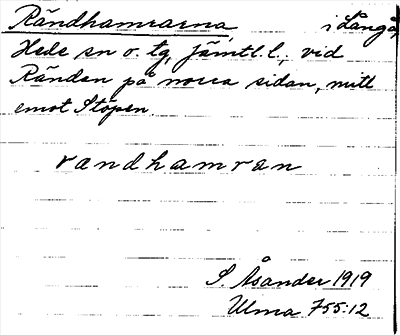 Rändhamrarna i Långå
Hede sn o. tg, Jämtl. l., vid
Ränden på norra sidan, mitt
emot Stöpen.
randhamran
S. Åsander 1919
Ulma 755:12